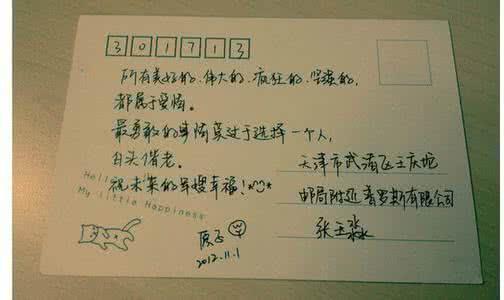 301713
所有美好的、伟大的、疯狂的、坚决的,
都属于爱情。
最勇敢的事情莫过于选择一个人,
白头偕老。
祝未来的军嫂幸福!
Hell
My Little Happiness
2012.11.1
天津市武清区王庆坨
邮局附近普罗斯有限公司
张玉淼